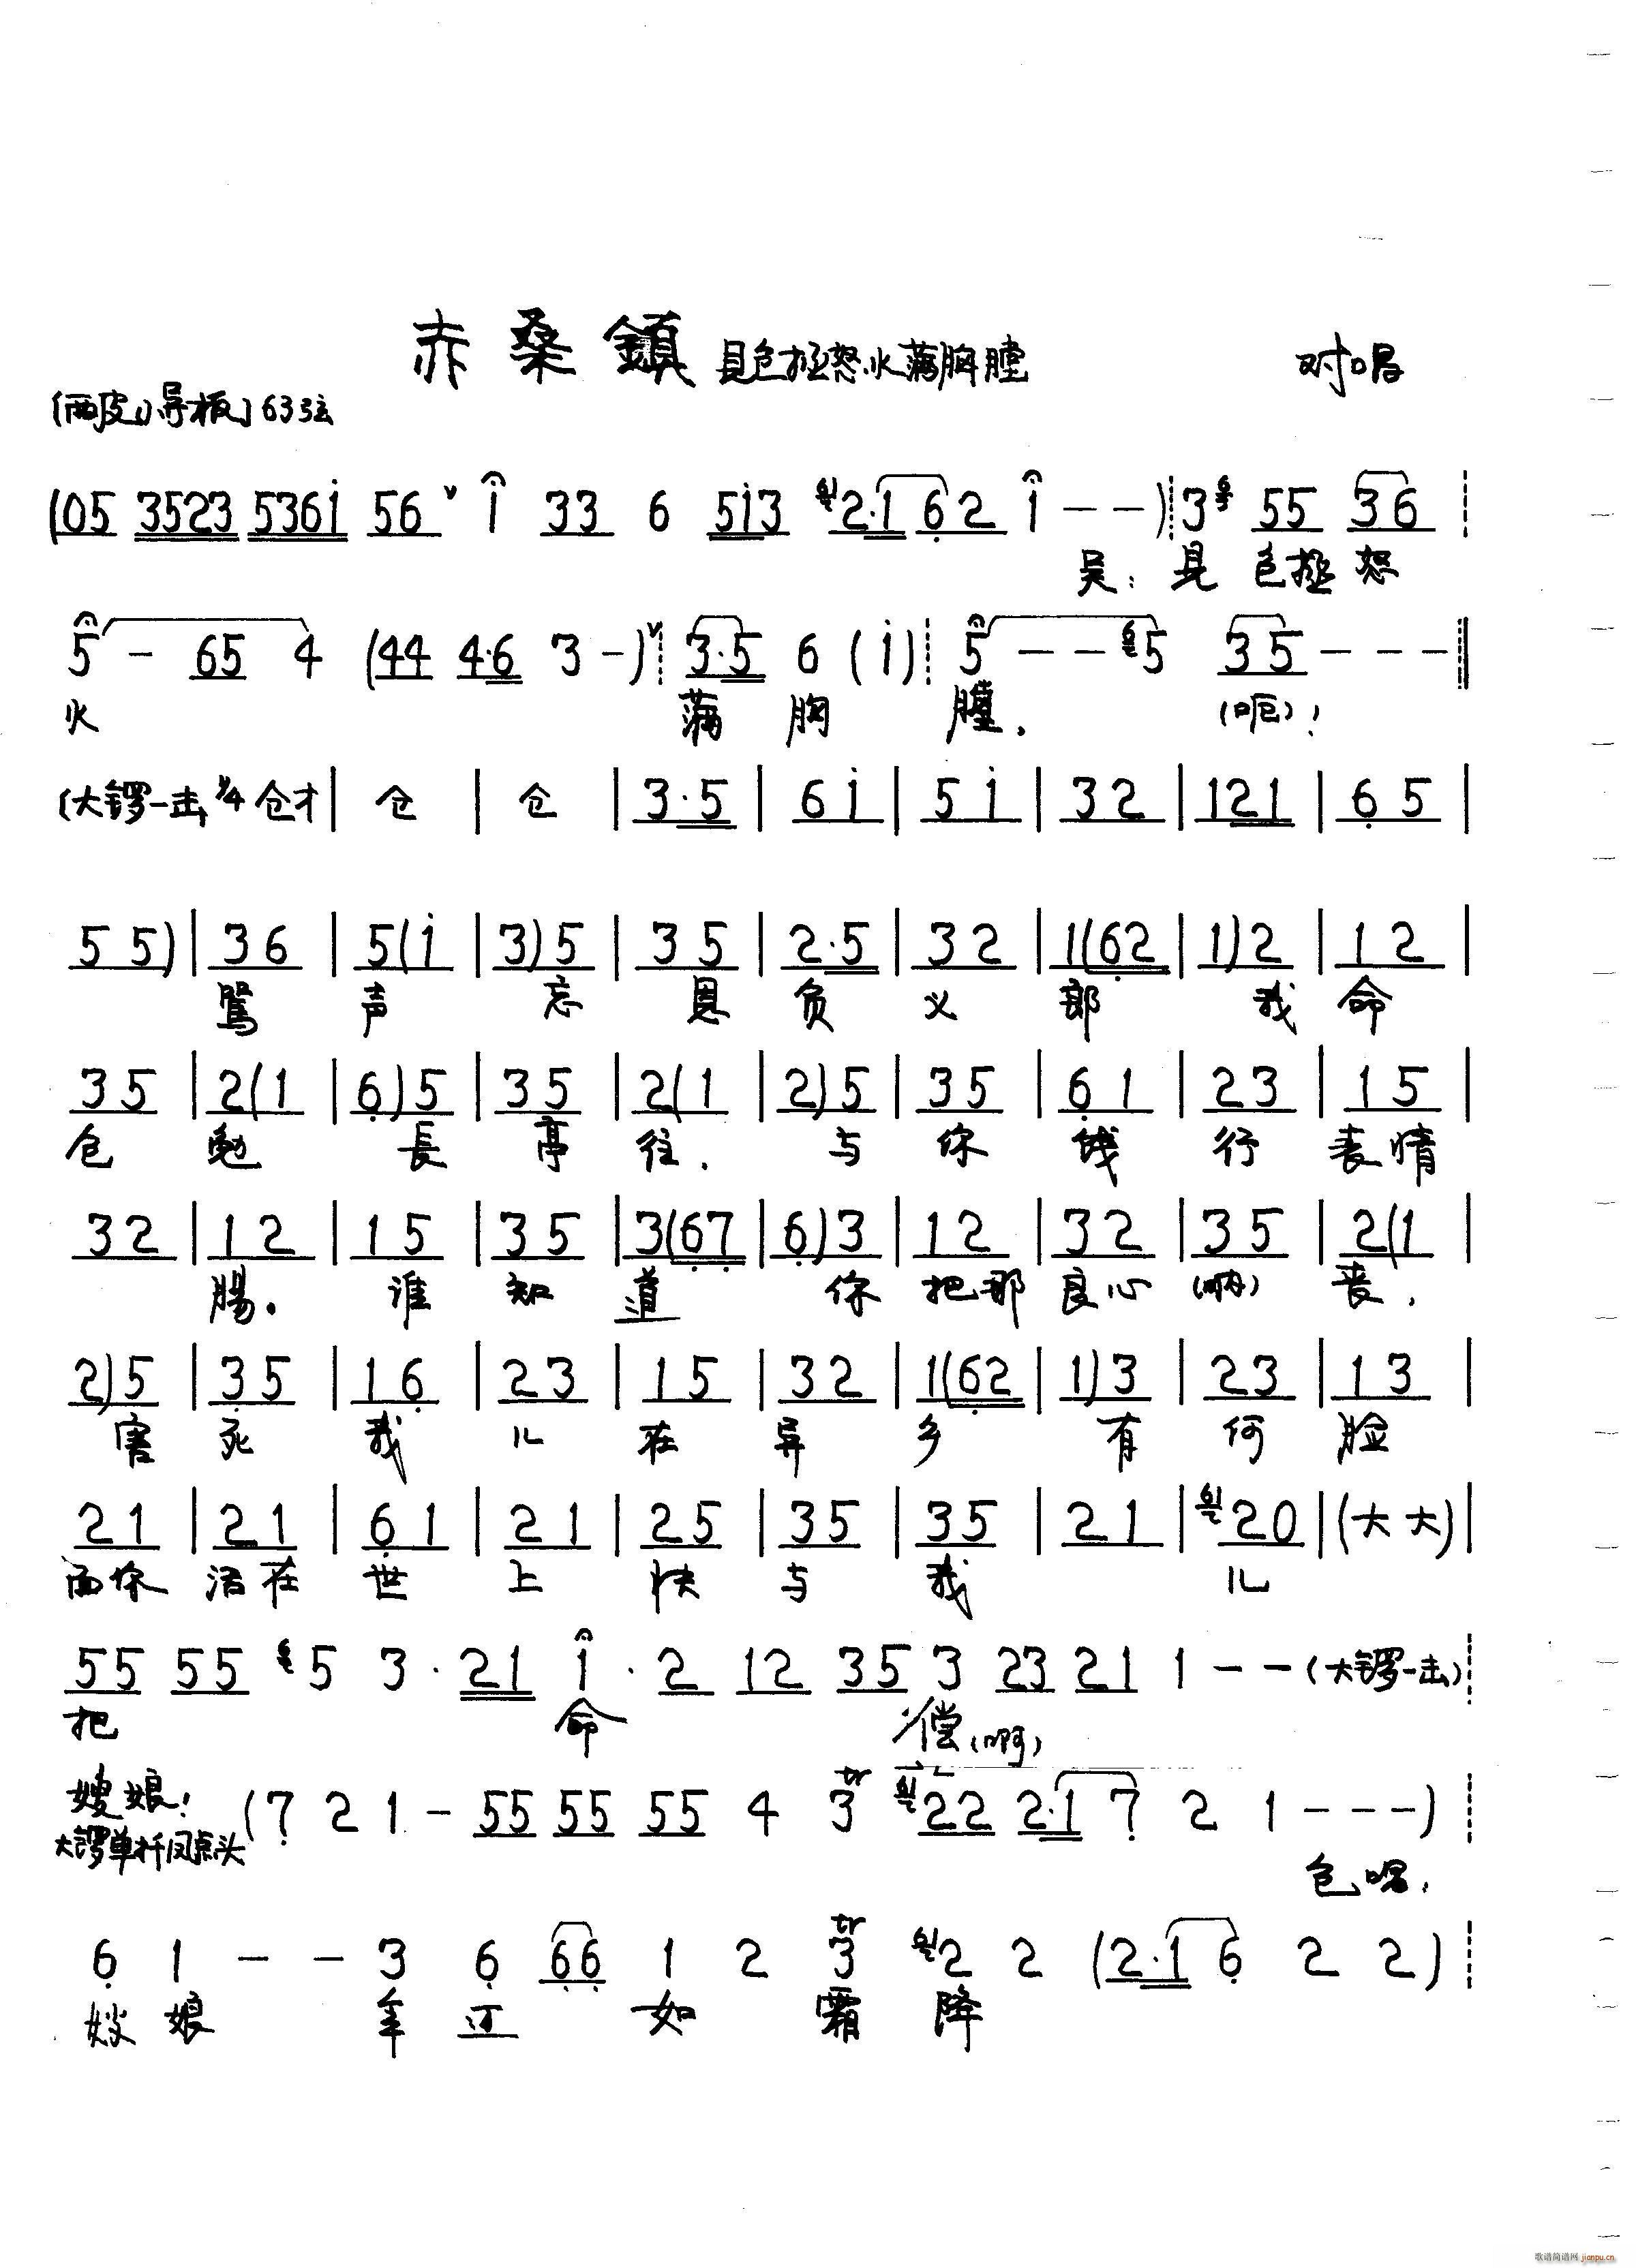 赤桑鎮 見包拯怒火满胸膛 对唱
(西皮)导板)63弦
(05 3523 536i 56 v i 33 6 5i3 2·1 6 2 i - - ) 3 55 36
吴: 見 包拯 怒
5 - 65 4 (44 4·6 3 -) v 3·5 6 (i) 5 - - 5 35 - - -
火 满 胸 膛. (呃)!
(大锣一击 1/4 仓才 | 仓 | 仓 | 3·5 | 6i | 5i | 32 | 121 | 65 |
55) | 36 | 5(i | 3)5 | 35 | 2·5 | 32 | 1(62 | 1)2 | 12 |
罵 声 忘 恩 负 义 郎 我 命
35 | 2(1 | 6)5 | 35 | 2(1 | 2)5 | 35 | 61 | 23 | 15 |
包 勉 長 亭 往. 与 你 饯 行 表情
32 | 12 | 15 | 35 | 3(67 | 6)3 | 12 | 32 | 35 | 2(1 |
腸。 谁 知 道 你 把那 良心 (呐) 喪.
2)5 | 35 | 16 | 23 | 15 | 32 | 1(62 | 1)3 | 23 | 13 |
害 死 我 儿 在 异 乡 有 何 脸
21 | 21 | 61 | 21 | 25 | 35 | 35 | 21 | 20 | (大大) |
面你 活在 世 上 快 与 我 儿
55 55 5 3 · 21 i · 2 12 35 3 23 21 1 - - (大锣一击)
把 命 偿 (啊)
嫂娘! (7 2 1 - 55 55 55 4 tr 3 22 2·1 7 2 1 - - -)
大锣单扦凤点头
包唱.
6 1 - - 3 6 66 1 2 tr 3 2 2 (2·1 6 2 2)
嫂 娘 年 迈 如 霜 降
歌谱简谱网 jianpu.cn